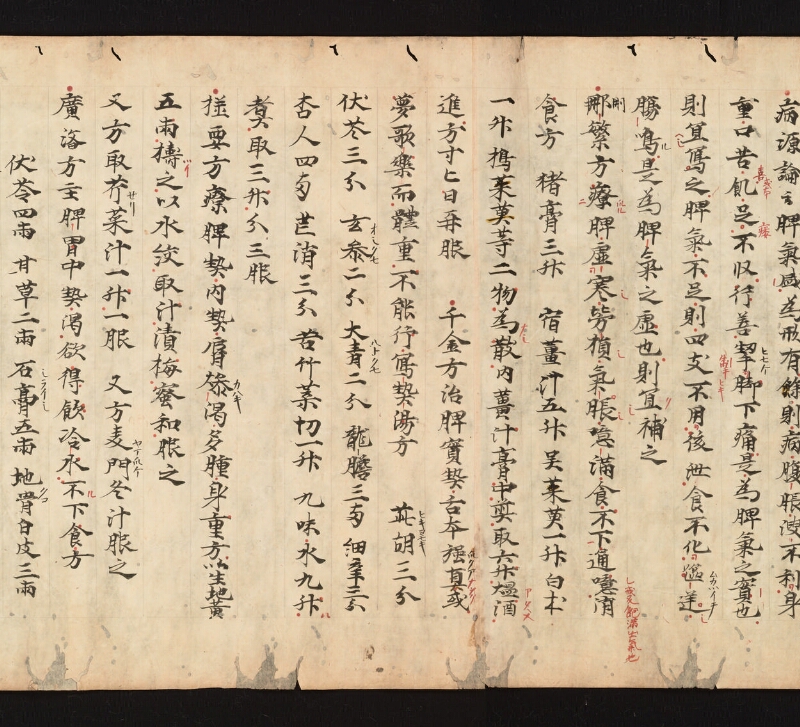 病源論云脾氣盛為形有餘則病腹脹溲不利身
重口苦飢足不收行善掣脚下痛是為脾氣之實也
則宜寫之脾氣不足則四支不用後泄食不化嘔逆
腸鳴是為脾氣之虛也則宜補之
刪繁方療脾虛寒勞損氣脹噫滿食不下通噫消
食方 猪膏三升 宿薑汁五升 吳茱萸一升 白朮
一升 搗茱萸等二物為散內薑汁膏中煎取六升溫酒
進方寸匕日再服 千金方治脾實熱舌本強直或
夢歌樂而體重不能行寫熱湯方 茈胡三分
伏苓三分 玄參二分 大青二分 龍膽三兩 細辛三分
杏人四兩 芒消三分 苦竹葉切一升 九味水九升
煑取三升分三服
方療脾熱內熱唇渴多腫身重方以生地黃
五兩搗之以水絞取汁漬梅蜜和服之
又方取芥菜汁一升一服 又方麦門冬汁服之
廣洛方主脾胃中熱渴欲得飲冷水不下食方
伏苓四兩 甘草二兩 石膏五兩 地骨白皮三兩